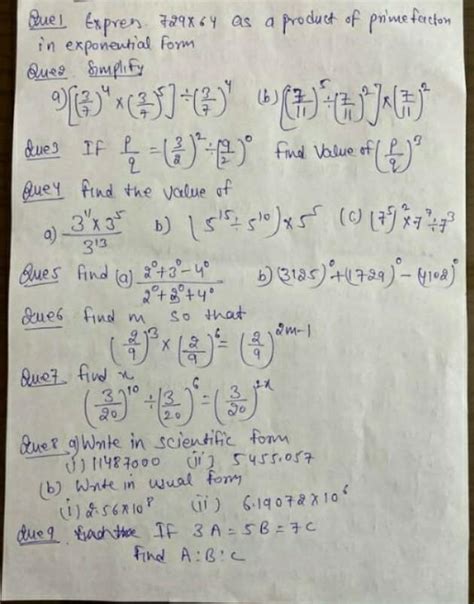 Que1 Express 729x64 as a product of prime factors
in exponential form
Que2 Simplify
a) [(3/7)^4 x (3/7)^5] ÷ (3/7)^4 (b) [(7/11)^5 ÷ (7/11)^2] x (7/11)^2
Que3 If P/q = (3/2)^2 ÷ (9/2)^0 find value of (P/q)^3
Que4 find the value of
a) 3^11 x 3^5 / 3^13 b) (5^15 ÷ 5^10) x 5^5 (c) (7^5)^2 x 7^7 ÷ 7^3
Que5 find (a) 2^0+3^0-4^0 / 2^0+3^0+4^0 b) (3125)^0+(1729)^0-(4102)^0
Que6 find m so that
(2/9)^3 x (2/9)^6 = (2/9)^2m-1
Que7 find x
(3/20)^10 ÷ (3/20)^6 = (3/20)^2x
Que8 a) Write in scientific form
(i) 11487000 (ii) 5455.057
(b) Write in usual form
(i) 2.56x10^8 (ii) 6.19072x10^6
Que9 If 3A = 5B = 7C
find A:B:C